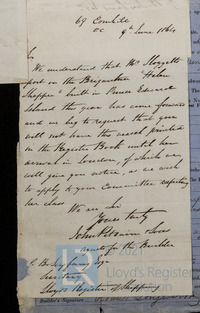 69 Cornhill
EC 9th June 1864
Sir
We understand that Mr Sloggett
report on the Brigantine "Helen
Shopper" built in Prince Edward
Island this year has come forward
and we beg to request that you
will not have this vessel printed
in the Register Book until her
arrival in London, of which we
will give you notice, as we wish
to apply to your Committee respecting
her class
We are Sir
Yours truly
John
Agents for the Builder
Secretary
Lloyds Register of Shipping
© 2021
Lloyd's Register
Builder's Signature